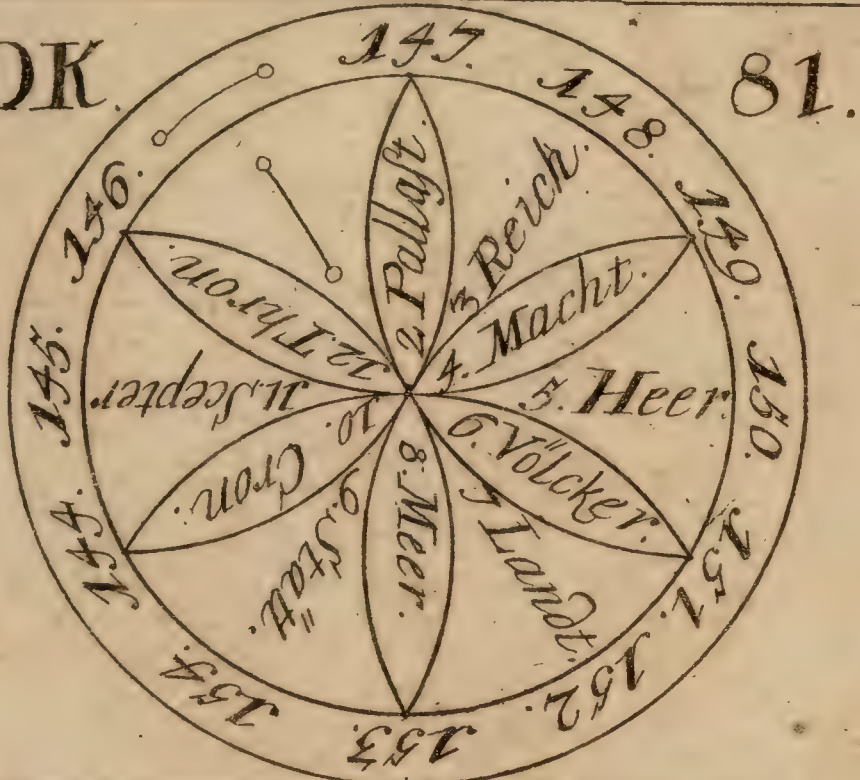 OK. 81.
147.
148.
149.
150.
151.
152.
153.
154.
144.
145.
146.
2 Pallast.
3 Reich.
4. Macht.
5. Heer.
6. Völcker.
7 Landt.
8. Meer.
9. Stätt.
10. Cron.
11. Scepter
12. Thron.